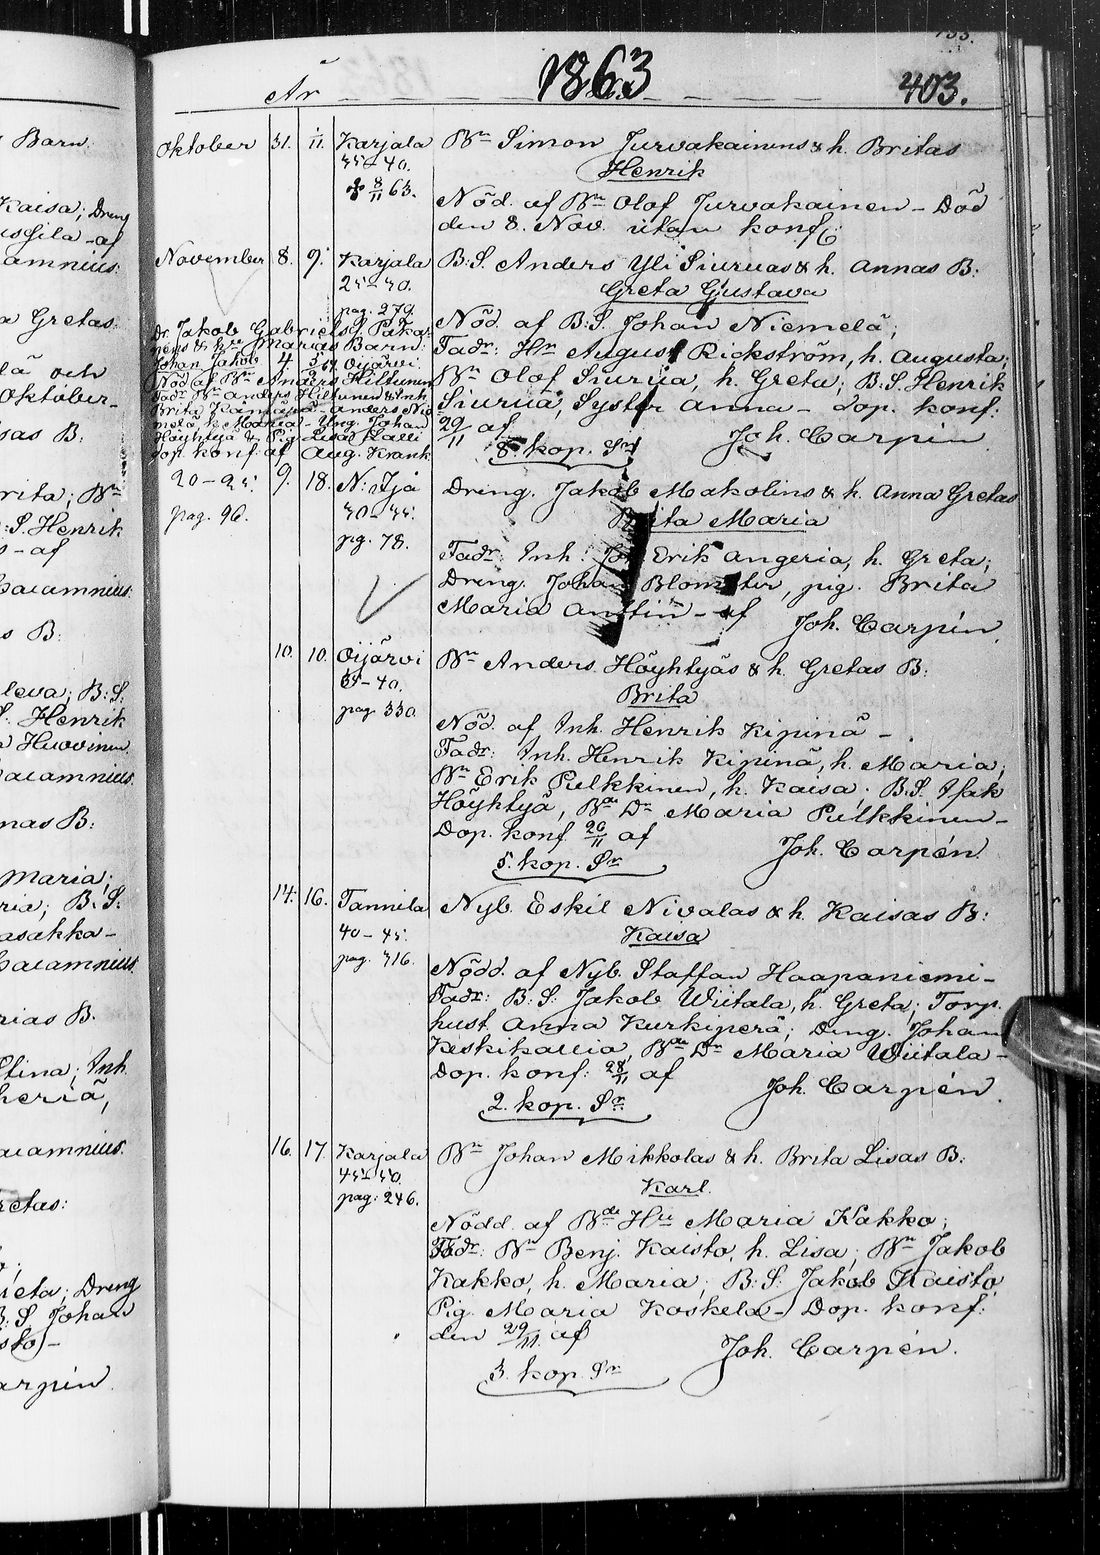 År 1863 403.
Oktober 31. 1/11. Karjala Bn Simon Jurvakainens & h. Britas
35-40. Henrik
✝ 8/11 63. Nöd. af Bn Olof Jurvakainen - Död
den 8. Nov. utan konf:
November 8. 9. Karjala B.S. Anders Yli Siuruas & h. Annas B:
25-30. Greta Gustava
pag. 279. Nöd. af B.S. Johan Niemelä;
Fadr: Hr August Rickström, h. Augusta;
Bn Olof Siurua, h. Greta; B.S. Henrik
Siurua, Syster Anna - Dop. konf:
29/11 af Joh. Carpén
8. kop. Sr
Dr. Jakob Gabrielss. Pakar
nens & hu Marias Barn:
Johan Jakob 4. 5/11 Oijärvi
Nöd af Bn Anders Hiltunen
Fadr Bn Anders Hiltunen & Inh.
Brita Kämäpä - Anders Nie
melä h. Maria - Yng. Johan
Höyhtyä & Pig. Lisa Halli
Dop. konf. af Aug. Krank
20-25. pag. 96.
9. 18. N: Ijä Dreng. Jakob Makolins & h. Anna Gretas
30-35. Brita Maria
pg. 78. Fadr: Inh: Joh Erik Angeria, h. Greta;
Dreng. Johan Blomster, pig. Brita
Maria Anttin - af Joh. Carpén.
10. 10. Oijärvi Bn Anders Höyhtyäs & h. Gretas B:
-40. Brita
pag. 330. Nöd. af Inh. Henrik Kipinä -
Fadr: Inh. Henrik Kipinä, h. Maria;
Bn Erik Pulkkinen, h. Kaisa; B.S. Isak
Höyhtyä, Bde Dr Maria Pulkkinen -
Dop. konf. 20/11 af Joh. Carpén.
5. kop. Sr
14. 16. Tannila Nyb. Eskil Nivalas & h. Kaisas B:
40-45. Kaisa
pag. 316. Nödd. af Nyb. Staffan Haapaniemi -
Fadr: B. S: Jakob Wiitala, h. Greta; Torp.
hust. Anna Kurkiperä; Dreng. Johan
Keskikallia, Bde Dr Maria Wiitala -
Dop. konf: 28/11 af Joh. Carpén.
2. kop. Sr
16. 17. Karjala Bn Johan Mikkolas & h. Brita Lisas B:
45-50. Karl.
pag: 246. Nödd. af Bde Hu Maria Kakko;
Fadr: Bn Benj. Kaisto, h. Lisa; Bn Jakob
Kakko, h. Maria; B. S: Jakob Kaisto
Pig. Maria Koskela - Dop. konf:
den 29/11. af Joh. Carpén.
3. kop. Sr